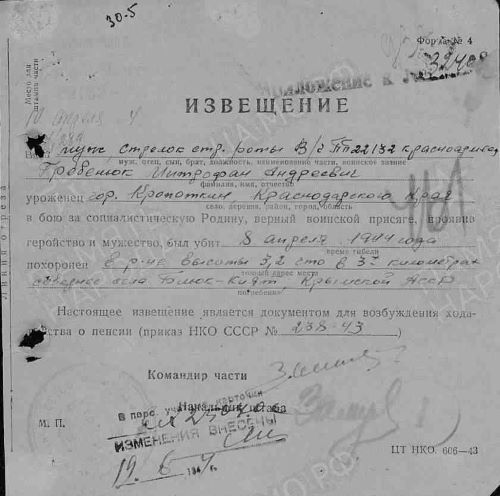 30.5
Форма № 4
32408
Место для штампа части
Приложение к
10 апреля
ИЗВЕЩЕНИЕ
Ваш муж, стрелок стр. роты В/ч ПП 22132 красноармеец
муж, отец, сын, брат, должность, наименование части, воинское звание
Гребенюк Митрофан Андреевич
фамилия, имя, отчество
уроженец гор. Кропоткин Краснодарского Края
село, деревня, район, город, область
в бою за социалистическую Родину, верный воинской присяге, проявив
геройство и мужество, был убит 8 апреля 1944 года
время гибели
похоронен в р-не высоты 3,2 что в 3х километрах
точный адрес места
севернее села Биюк-Кият, Крымской АССР
погребения
Настоящее извещение является документом для возбуждения хода-
тайства о пенсии (приказ НКО СССР № 238-43)
Командир части
Начальник штаба
В перс. учетн. карточки
ИЗМЕНЕНИЯ ВНЕСЕНЫ
19. 6 194
М. П.
ЦТ НКО. 606—43
Линия отреза